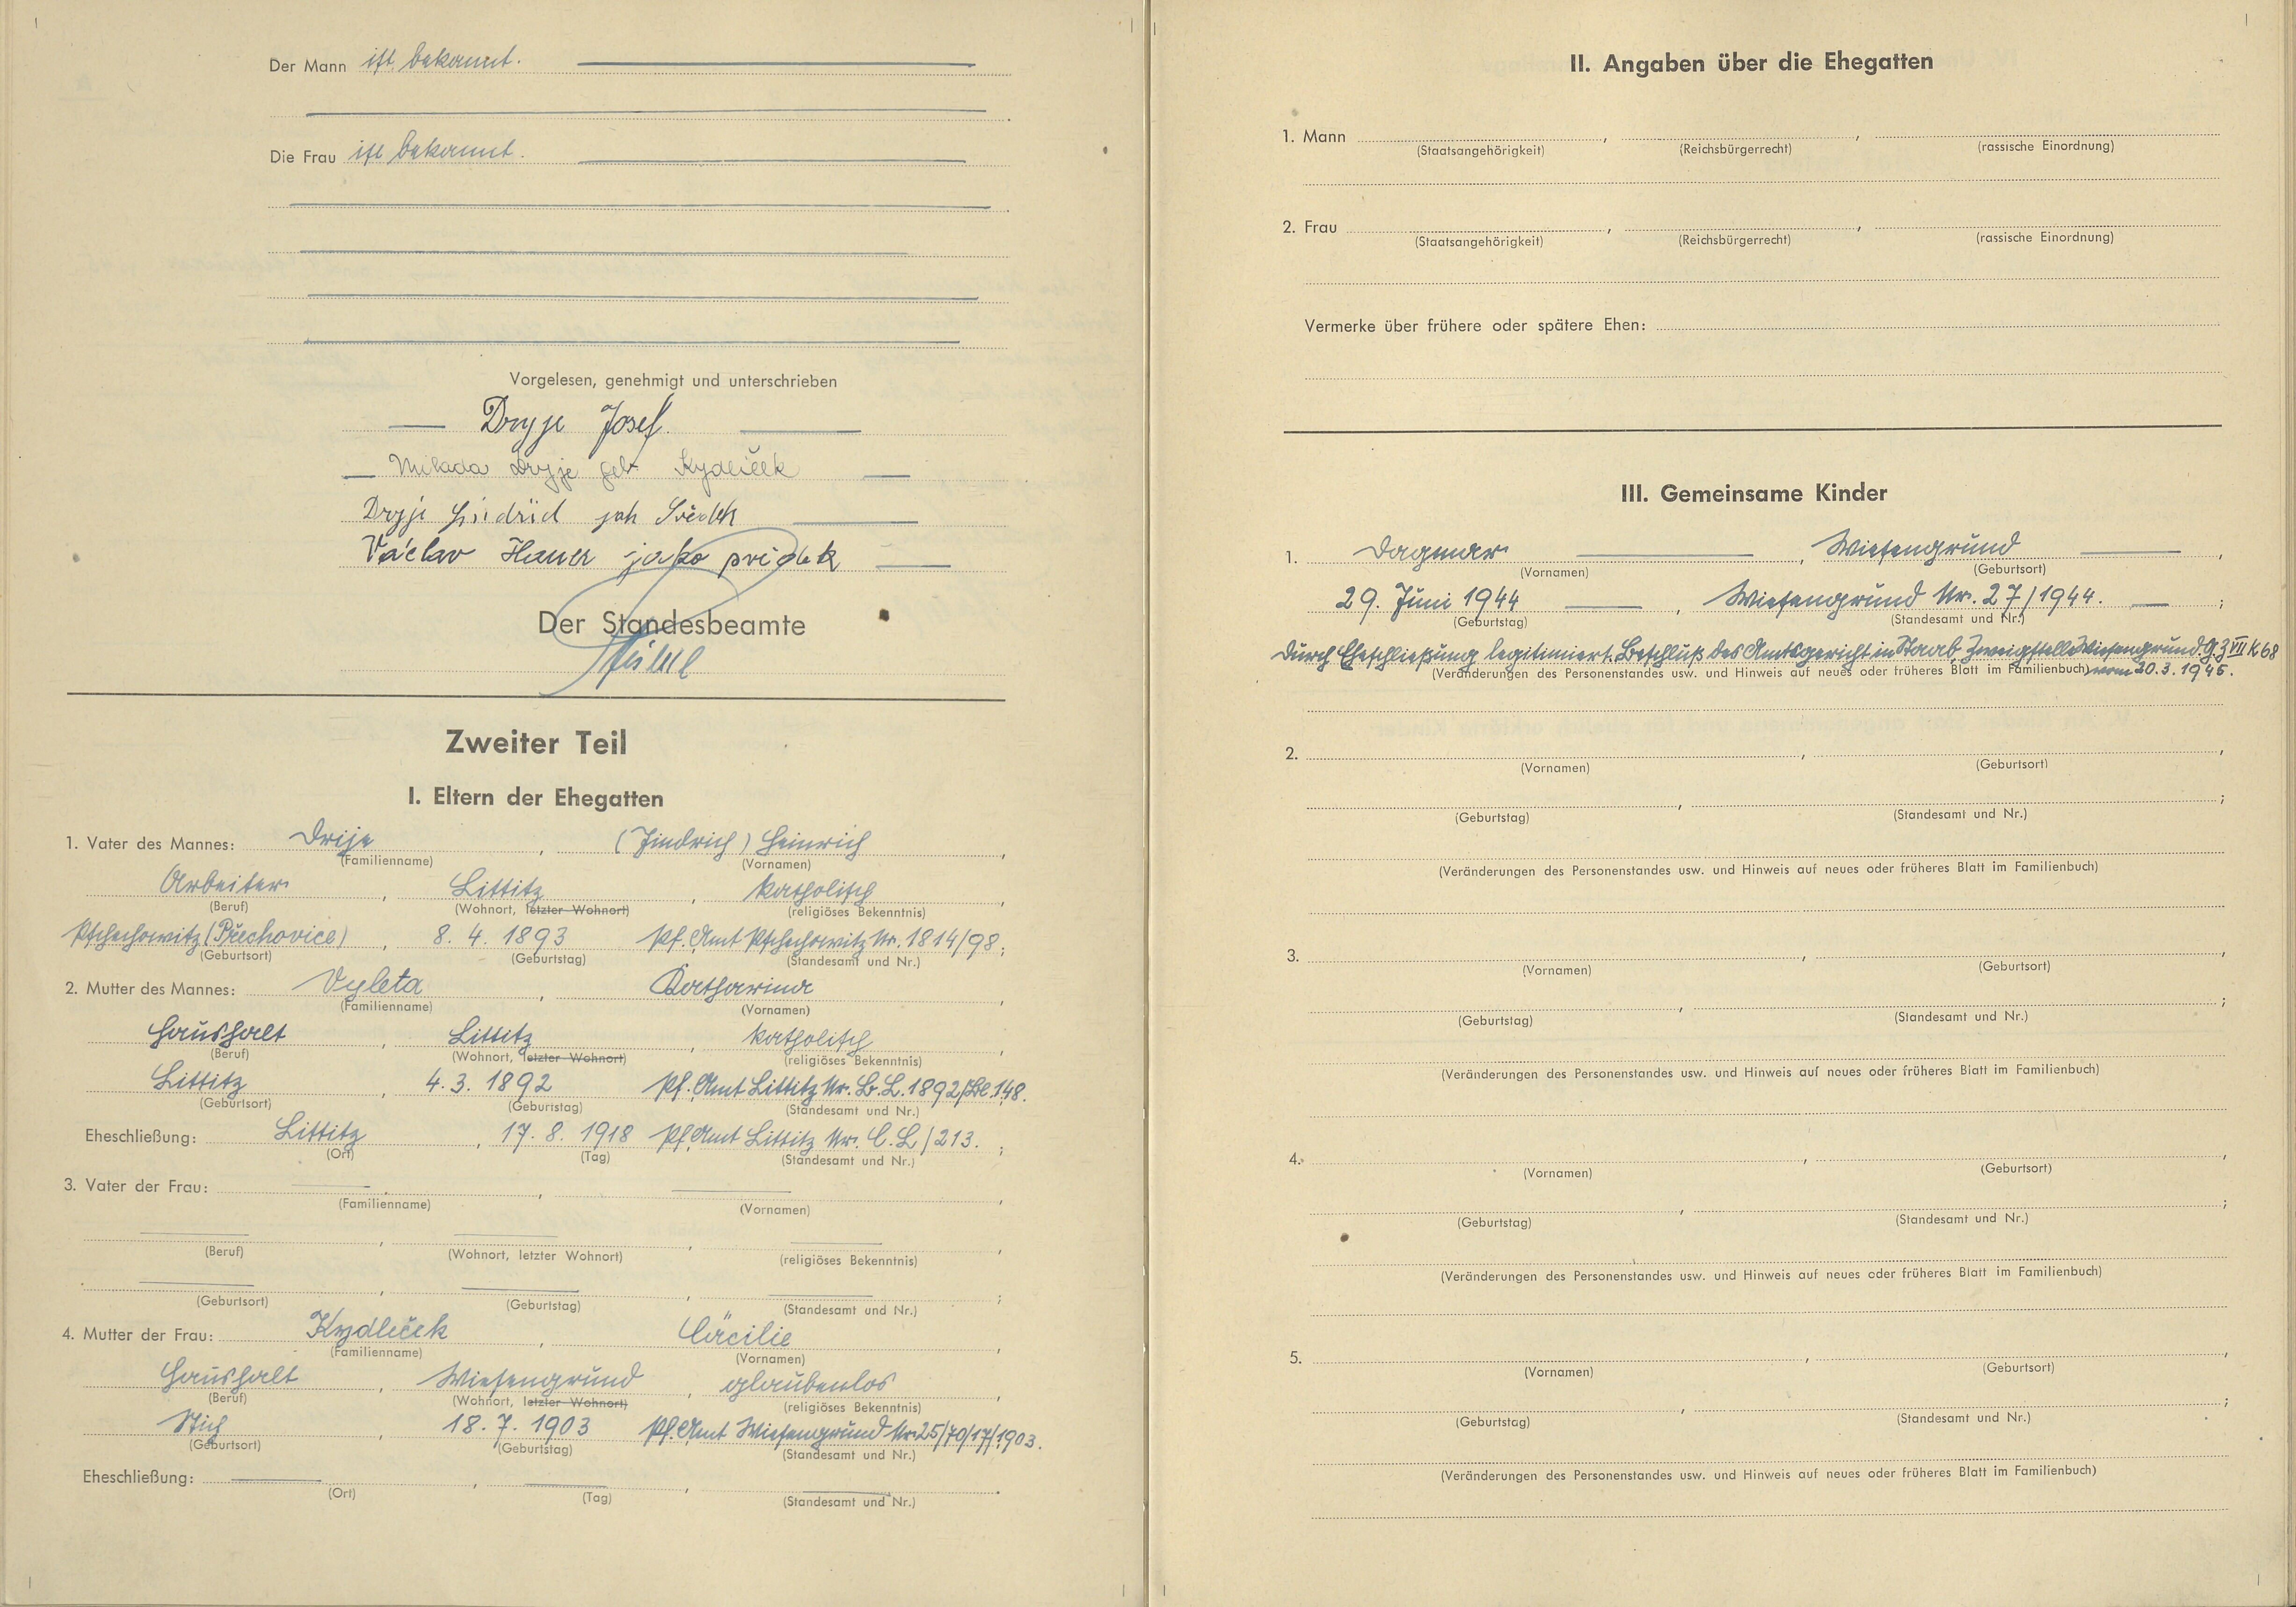 Der Mann ist bekannt.
Die Frau ist bekannt.
Vorgelesen, genehmigt und unterschrieben
Dryje Josef.
Milada Dryje geb. Kydlíček
Dryje
Václav Hauer jako svědek
Der Standesbeamte
Zweiter Teil
I. Eltern der Ehegatten
1. Vater des Mannes: Drije, (Jindrich) Heinrich,
(Familienname) (Vornamen)
Arbeiter, Littitz, katholisch,
(Beruf) (Wohnort, letzter Wohnort) (religiöses Bekenntnis)
Ptschechowitz (Přechovice), 8. 4. 1893 Pf. Amt Ptschechowitz Nr. 1814/98;
(Geburtsort) (Geburtstag) (Standesamt und Nr.)
2. Mutter des Mannes: Vyleta, Katharina,
(Familienname) (Vornamen)
Haushalt, Littitz, katholisch,
(Beruf) (Wohnort, letzter Wohnort) (religiöses Bekenntnis)
Littitz, 4. 3. 1892 Pf. Amt Littitz Nr. B. L. 1892/Bl. 148.
(Geburtsort) (Geburtstag) (Standesamt und Nr.)
Eheschließung: Littitz, 17. 8. 1918 Pf. Amt Littitz Nr. C. L/213.;
(Ort) (Tag) (Standesamt und Nr.)
3. Vater der Frau: , ,
(Familienname) (Vornamen)
(Beruf) (Wohnort, letzter Wohnort) (religiöses Bekenntnis)
(Geburtsort) (Geburtstag) (Standesamt und Nr.)
4. Mutter der Frau: Kydleček, Cäcilie,
(Familienname) (Vornamen)
Haushalt, Wiesengrund, glaubenlos,
(Beruf) (Wohnort, letzter Wohnort) (religiöses Bekenntnis)
Stich, 18. 7. 1903 Pf. Amt Wiesengrund Nr. 25/70/17/1903.
(Geburtsort) (Geburtstag) (Standesamt und Nr.)
Eheschließung: , , .
(Ort) (Tag) (Standesamt und Nr.)
II. Angaben über die Ehegatten
1. Mann , ,
(Staatsangehörigkeit) (Reichsbürgerrecht) (rassische Einordnung)
2. Frau , ,
(Staatsangehörigkeit) (Reichsbürgerrecht) (rassische Einordnung)
Vermerke über frühere oder spätere Ehen:
III. Gemeinsame Kinder
1. Dagmar, Wiesengrund,
(Vornamen) (Geburtsort)
29. Juni 1944, Wiesengrund Nr. 27/1944.;
(Geburtstag) (Standesamt und Nr.)
Durch Eheschließung legitimiert. Beschluß des Amtsgericht in Staab, Zweigstelle Wiesengrund. G. Z VII K 68
(Veränderungen des Personenstandes usw. und Hinweis auf neues oder früheres Blatt im Familienbuch) vom 20. 3. 1945.
2. , ,
(Vornamen) (Geburtsort)
(Geburtstag) (Standesamt und Nr.)
(Veränderungen des Personenstandes usw. und Hinweis auf neues oder früheres Blatt im Familienbuch)
3. , ,
(Vornamen) (Geburtsort)
(Geburtstag) (Standesamt und Nr.)
(Veränderungen des Personenstandes usw. und Hinweis auf neues oder früheres Blatt im Familienbuch)
4. , ,
(Vornamen) (Geburtsort)
(Geburtstag) (Standesamt und Nr.)
(Veränderungen des Personenstandes usw. und Hinweis auf neues oder früheres Blatt im Familienbuch)
5. , ,
(Vornamen) (Geburtsort)
(Geburtstag) (Standesamt und Nr.)
(Veränderungen des Personenstandes usw. und Hinweis auf neues oder früheres Blatt im Familienbuch)